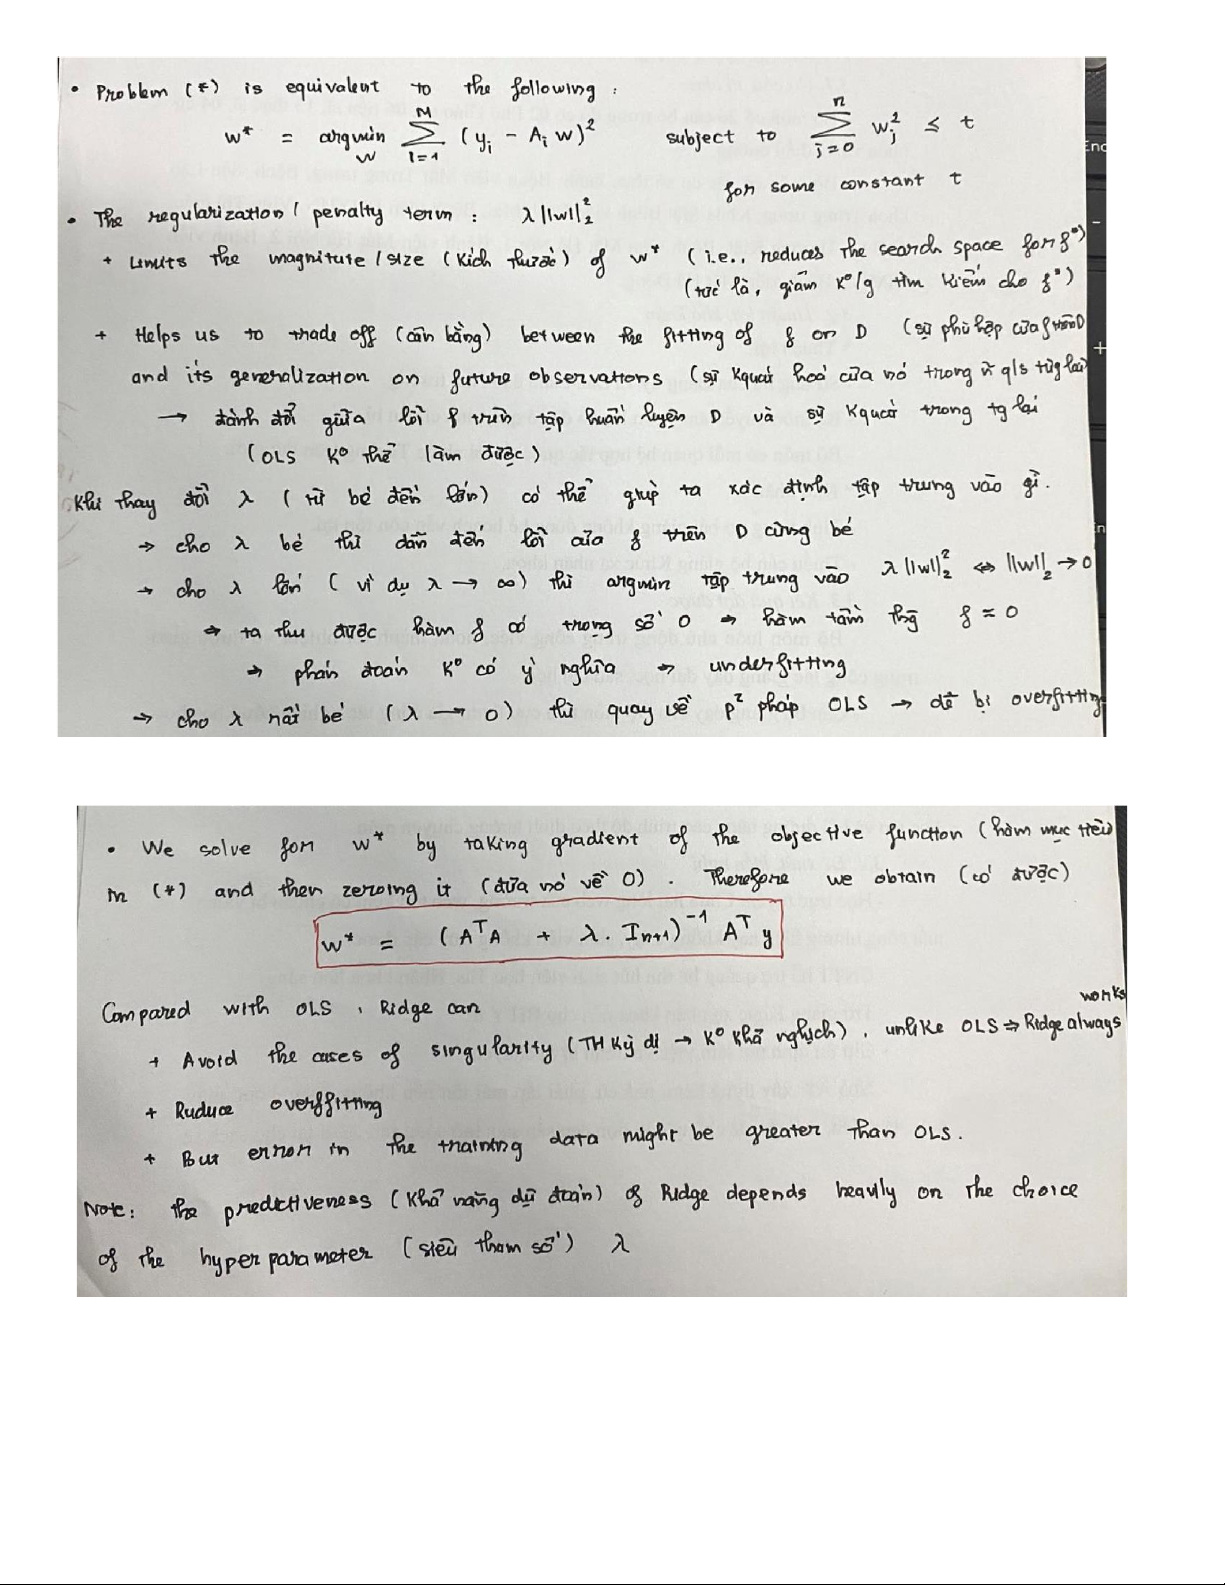 • Problem (*) is equivalent to the following :
w* = argmin_w Σ_{i=1}^{M} (y_i - A_i w)² subject to Σ_{j=0}^{n} w_j² ≤ t
for some constant t
• The regularization / penalty term : λ||w||₂²
+ Limits the magnitute / size (kích thước) of w* (i.e., reduces the search space for f*)
(tức là, giảm k°/g tìm kiếm cho f*)
+ Helps us to trade off (cân bằng) between the fitting of f on D (sự phù hợp của f trên D
and its generalization on future observations (sự kquát hoá của nó trong ~ q/s tg lai)
→ đánh đổi giữa lỗi f trên tập huấn luyện D và sự kquát trong tg lai
(OLS k° thể làm được)
Khi thay đổi λ (từ bé đến lớn) có thể giúp ta xác định tập trung vào gì.
→ cho λ bé thì dẫn đến lỗi của f trên D cũng bé
→ cho λ lớn (ví dụ λ → ∞) thì argmin tập trung vào λ||w||₂² ⇔ ||w||₂ → 0
⇒ ta thu được hàm f có trọng số 0 ⇒ hàm tầm thg f ≈ 0
⇒ phán đoán k° có ý nghĩa ⇒ underfitting
→ cho λ rất bé (λ → 0) thì quay về p² pháp OLS → dễ bị overfitting
• We solve for w* by taking gradient of the objective function (hàm mục tiêu)
in (*) and then zeroing it (đưa nó về 0). Therefore we obtain (có được)
w* = (AᵀA + λ. I_{n+1})⁻¹ Aᵀ y
Compared with OLS, Ridge can
+ Avoid the cases of singularity (TH kỳ dị → k° khả nghịch), unlike OLS ⇒ Ridge always works
+ Ruduce overffitting
+ But error in the training data might be greater than OLS.
Note: the predictiveness (khả năng dự đoán) of Ridge depends heavily on the choice
of the hyperparameter (siêu tham số) λ